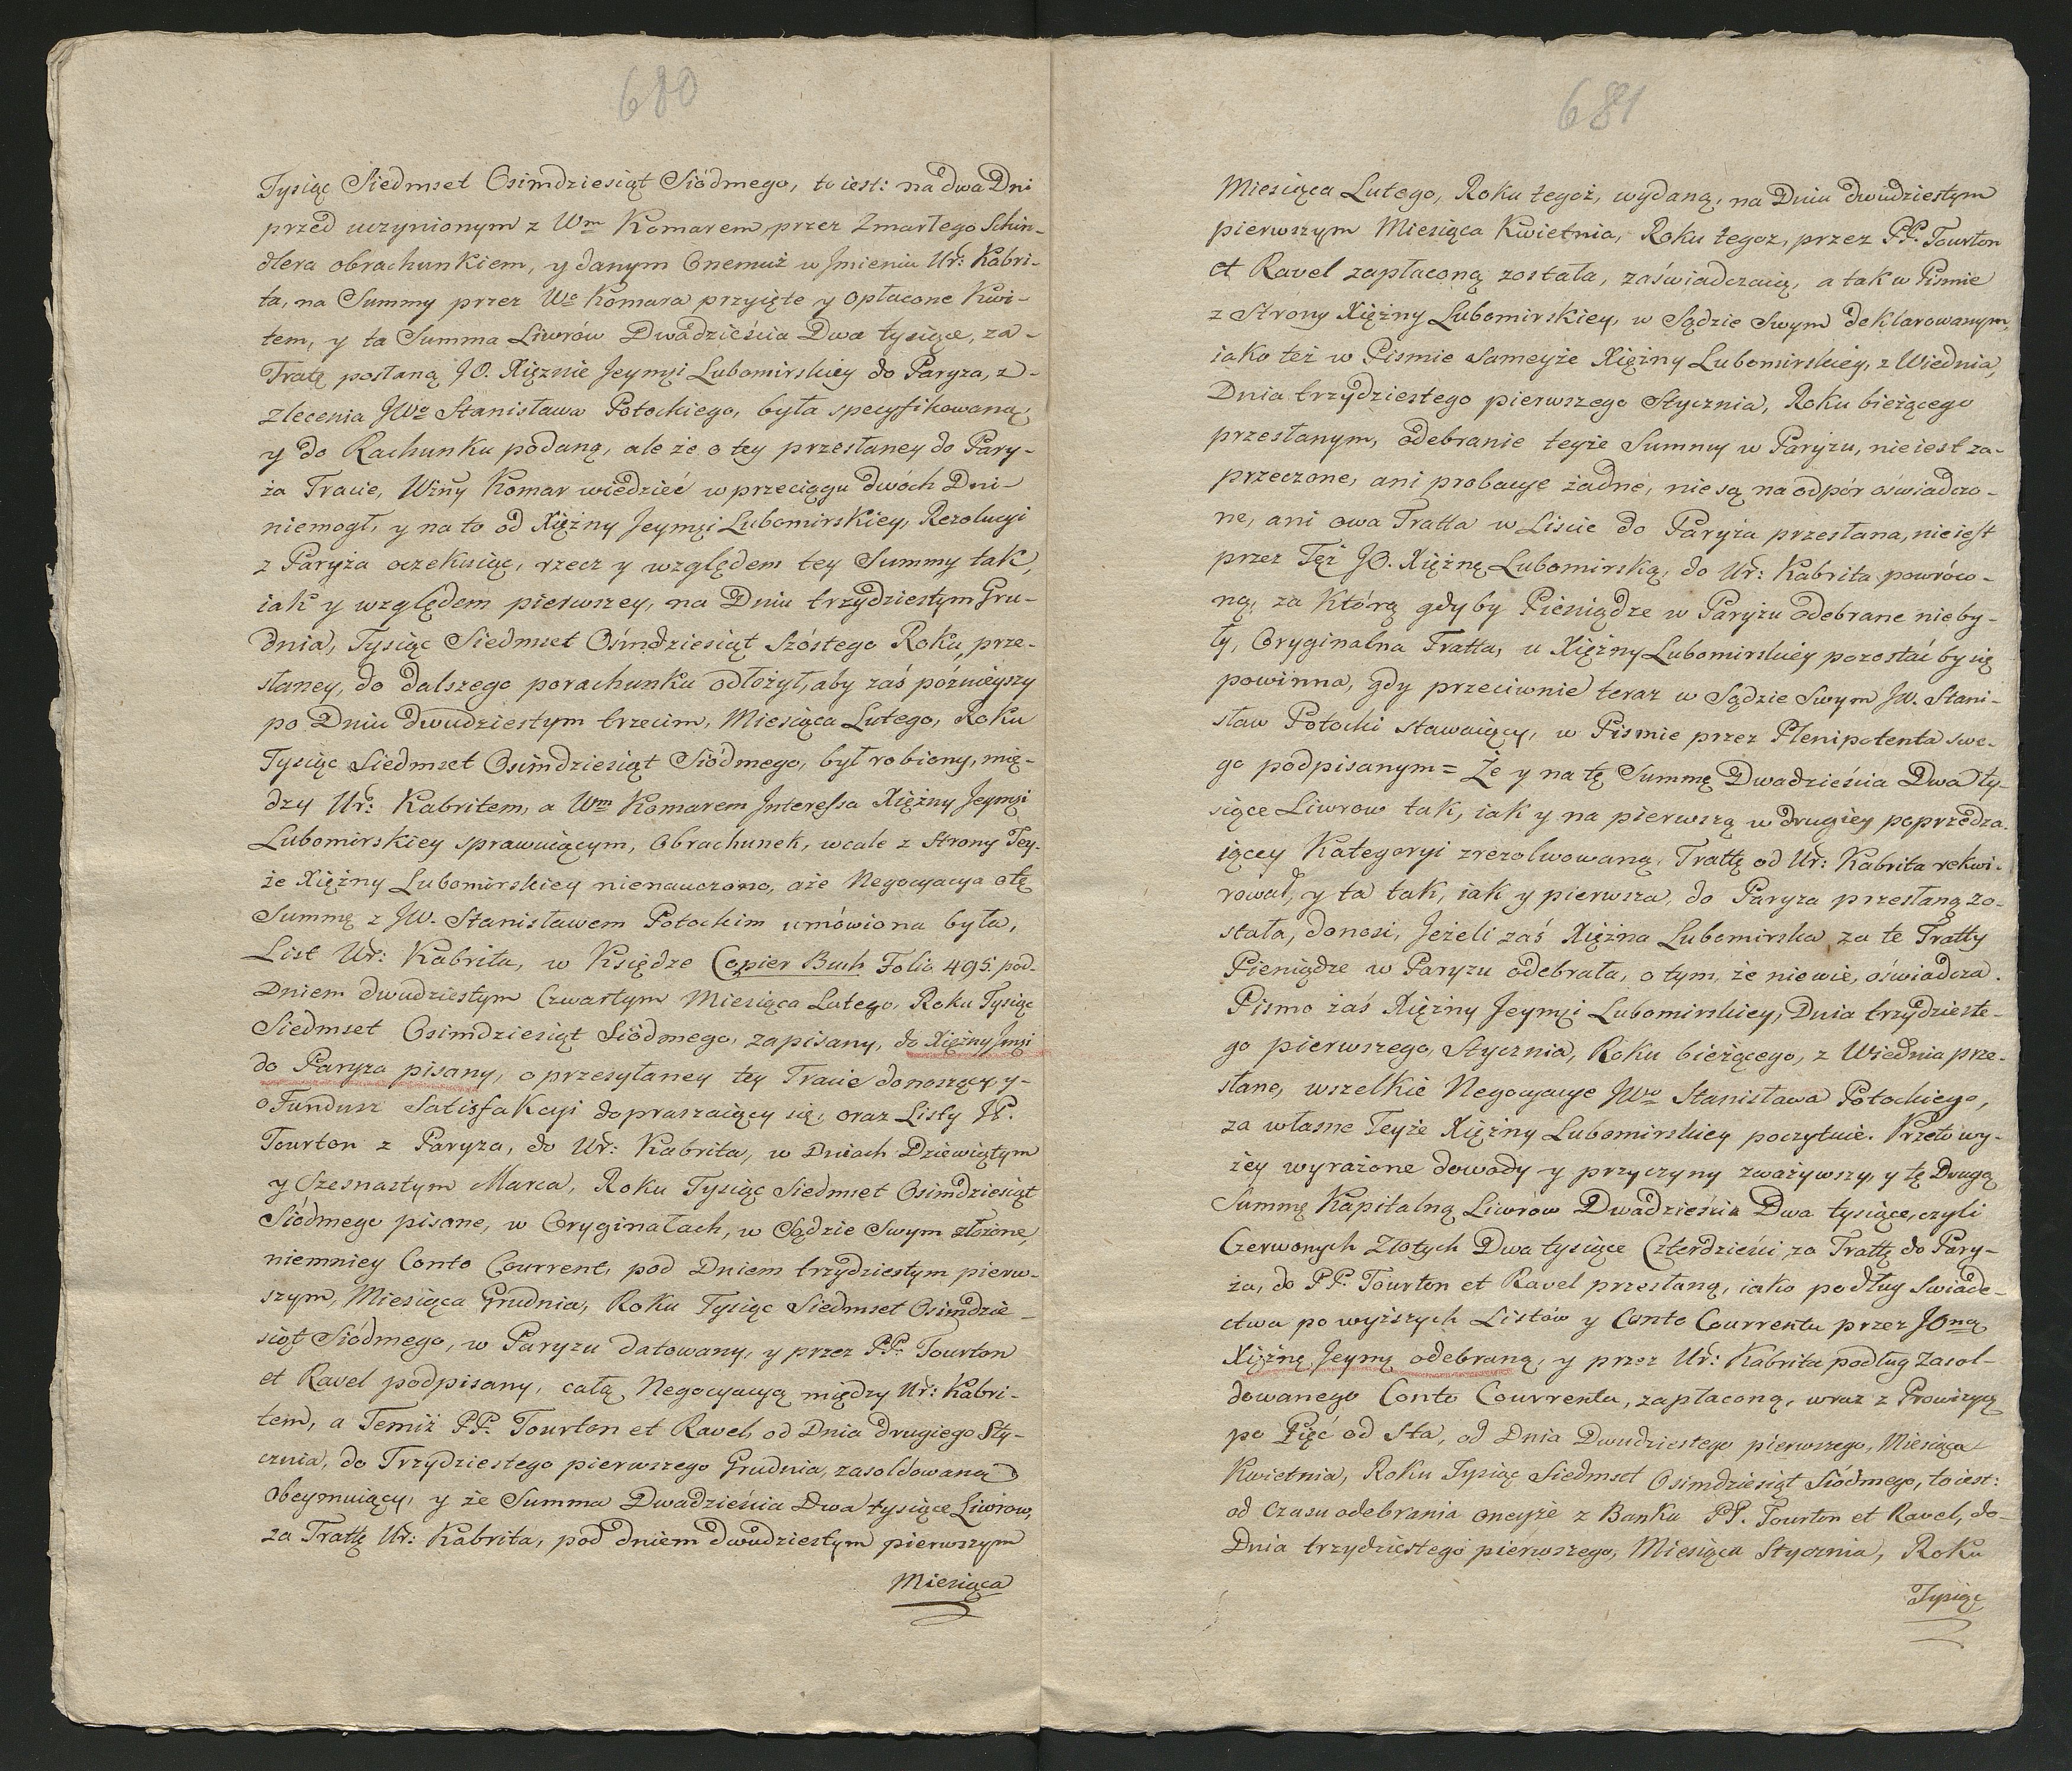 680
Tysiąc Siedmset Osimdziesiąt Siódmego, to iest: na dwa Dni
przed uczynionym z Wm Komarem, przez Zmarłego Schin-
dlera obrachunkiem, y danym Onemuż w Jmieniu Ur: Kabri-
ta, na Summy przez Wo Komara przyięte y opłacone Kwi-
tem, y ta Summa Liwrów Dwadzieścia Dwa tysiące, za-
Tratę posłaną JO. Xiężnie Jeymći Lubomirskiey do Paryża, z-
zlecenia JWo Stanisława Potockiego, była specyfikowaną,
y do Rachunku podaną, ale że o tey przesłaney do Pary-
ża Tracie, Wżny Komar wiedzieć w przeciągu dwóch Dni-
niemogł, y na to od Xiężny Jeymći Lubomirskiey, Rezolucyi
z Paryża oczekuiąc, rzecz y względem tey Summy tak,
iak y względem pierwszey, na Dniu trzydziestym Gru-
dnia, Tysiąc Siedmset Ośmdziesiąt Szóstego Roku, prze-
słaney, do dalszego porachunku odłożył, aby zaś późnieyszy
po Dniu dwudziestym trzecim, Miesiąca Lutego, Roku
Tysiąc Siedmset Osimdziesiąt Siódmego, był robiony, mię-
dzy Ur: Kabritem, a Wm Komarem Interessa Xiężny Jeymći
Lubomirskiey sprawuiącym, Obrachunek, wcale z strony Tey-
że Xiężny Lubomirskiey nienauczono, aże Negocyacya o tę
Summę z JW. Stanisławem Potockim umówiona była,
List Ur: Kabrita, w Księdze Copier Buch Folio 495. pod-
Dniem dwudziestym Czwartym Miesiąca Lutego, Roku Tysiąc
Siedmset Osimdziesiąt Siódmego, zapisany, do Xiężny Jmći
do Paryża pisany, o przesyłaney tey Tracie donoszący y-
o Fundusz Satisfakcyi dopraszaiący się, oraz Listy JP.
Tourton z Paryża, do Ur: Kabrita, w Dniach Dziewiątym
y Szesnastym Marca, Roku Tysiąc Siedmset Osimdziesiąt
Siódmego pisane, w Oryginałach, w Sądzie Swym złożone,
niemniey Conto Courrent, pod Dniem trzydziestym pierw-
szym, Miesiąca Grudnia, Roku Tysiąc Siedmset Osimdzie-
siąt Siódmego, w Paryżu datowany, y przez PP. Tourton
et Ravel podpisany, całą Negocyacyą między Ur: Kabri-
tem, a Temiż PP. Tourton et Ravel, od Dnia drugiego Sty-
cznia, do Trzydziestego pierwszego Grudnia, zasoldowaną
Obeymuiący, y że Summa Dwadzieścia Dwa tysiące Liwrow,
za Trattę Ur: Kabrita, pod dniem dwudziestym pierwszym
Miesiąca
681
Miesiąca Lutego, Roku tegoż, wydaną, na Dniu dwudziestym
pierwszym Miesiąca Kwietnia, Roku tegoz, przez PP. Tourton
et Ravel zapłaconą została, zaświadczaią, a tak w Pismie
z Strony Xiężny Lubomirskiey, w Sądzie Swym deklarowanym,
iako też w Pismie Sameyże Xiężny Lubomirskiey, z Wiednia,
Dnia trzydziestego pierwszego Stycznia, Roku bieżącego
przesłanym, odebranie teyże Summy w Paryżu, nieiest za-
przeczone, ani probacye żadne, nie są na odpór oświadczo-
ne, ani owa Tratta w Liscie do Paryża przesłana, nieiest
przez Tęż JO. Xiężnę Lubomirską, do Ur: Kabrita powróco-
ną, za Którą gdyby Pieniądze w Paryżu odebrane nieby-
ły, Oryginalna Tratta, u Xiężny Lubomirskiey pozostać by się
powinna, gdy przeciwnie teraz w Sądzie Swym JW. Stani-
sław Potocki stawaiący, w Pismie przez Plenipotenta swe-
go podpisanym = Że y na tę Summę Dwadzieścia Dwa ty-
siące Liwrow tak, iak y na pierwszą w drugiey poprzedza-
iącey Kategoryi zrezolwowaną, Trattę od Ur: Kabrita rekwi-
rował, y ta tak, iak y pierwsza, do Paryża przesłaną zo-
stała, donosi, Jeżeli zaś Xiężna Lubomirska za te Tratty
Pieniądze w Paryżu odebrała, o tym, że niewie, oświadcza.
Pismo zaś Xiężny Jeymći Lubomirskiey, Dnia trzydzieste-
go pierwszego, Stycznia, Roku bieżącego, z Wiednia prze-
słane, wszelkie Negocyacye JWo Stanisława Potockiego,
za własne Teyże Xiężny Lubomirskiey poczytuie. Przeto wy-
żey wyrażone dowody y przyczyny zważywszy, y tę Drugą
Summę Kapitalną Liwrów Dwadzieścia Dwa tysiące, czyli
Czerwonych Złotych Dwa tysiące Czterdzieści za Trattę do Pary-
ża, do PP. Tourton et Ravel przesłaną, iako podług Swiade-
ctwa powyższych Listów y Conto Courrentu przez JOną
Xiężnę Jeymę odebraną, y przez Ur: Kabrita podług Zasol-
dowanego Conto Courrentu, zapłaconą, wraz z Prowizyą
po Pięć od Sta, od Dnia Dwudziestego pierwszego, Miesiąca
Kwietnia, Roku Tysiąc Siedmset Osimdziesiąt Siódmego, to iest:
od Czasu odebrania oneyże z Banku PP. Tourton et Ravel, do-
Dnia trzydziestego pierwszego, Miesiąca Stycznia, Roku
Tysiąc